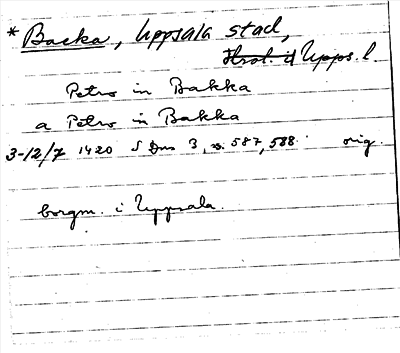 * Backa, Uppsala stad,
Upps. l.
Petro in Bakka
a Petro in Bakka
3-12/7 1420 SDns 3, s. 587, 588. orig.
borgm. i Uppsala.